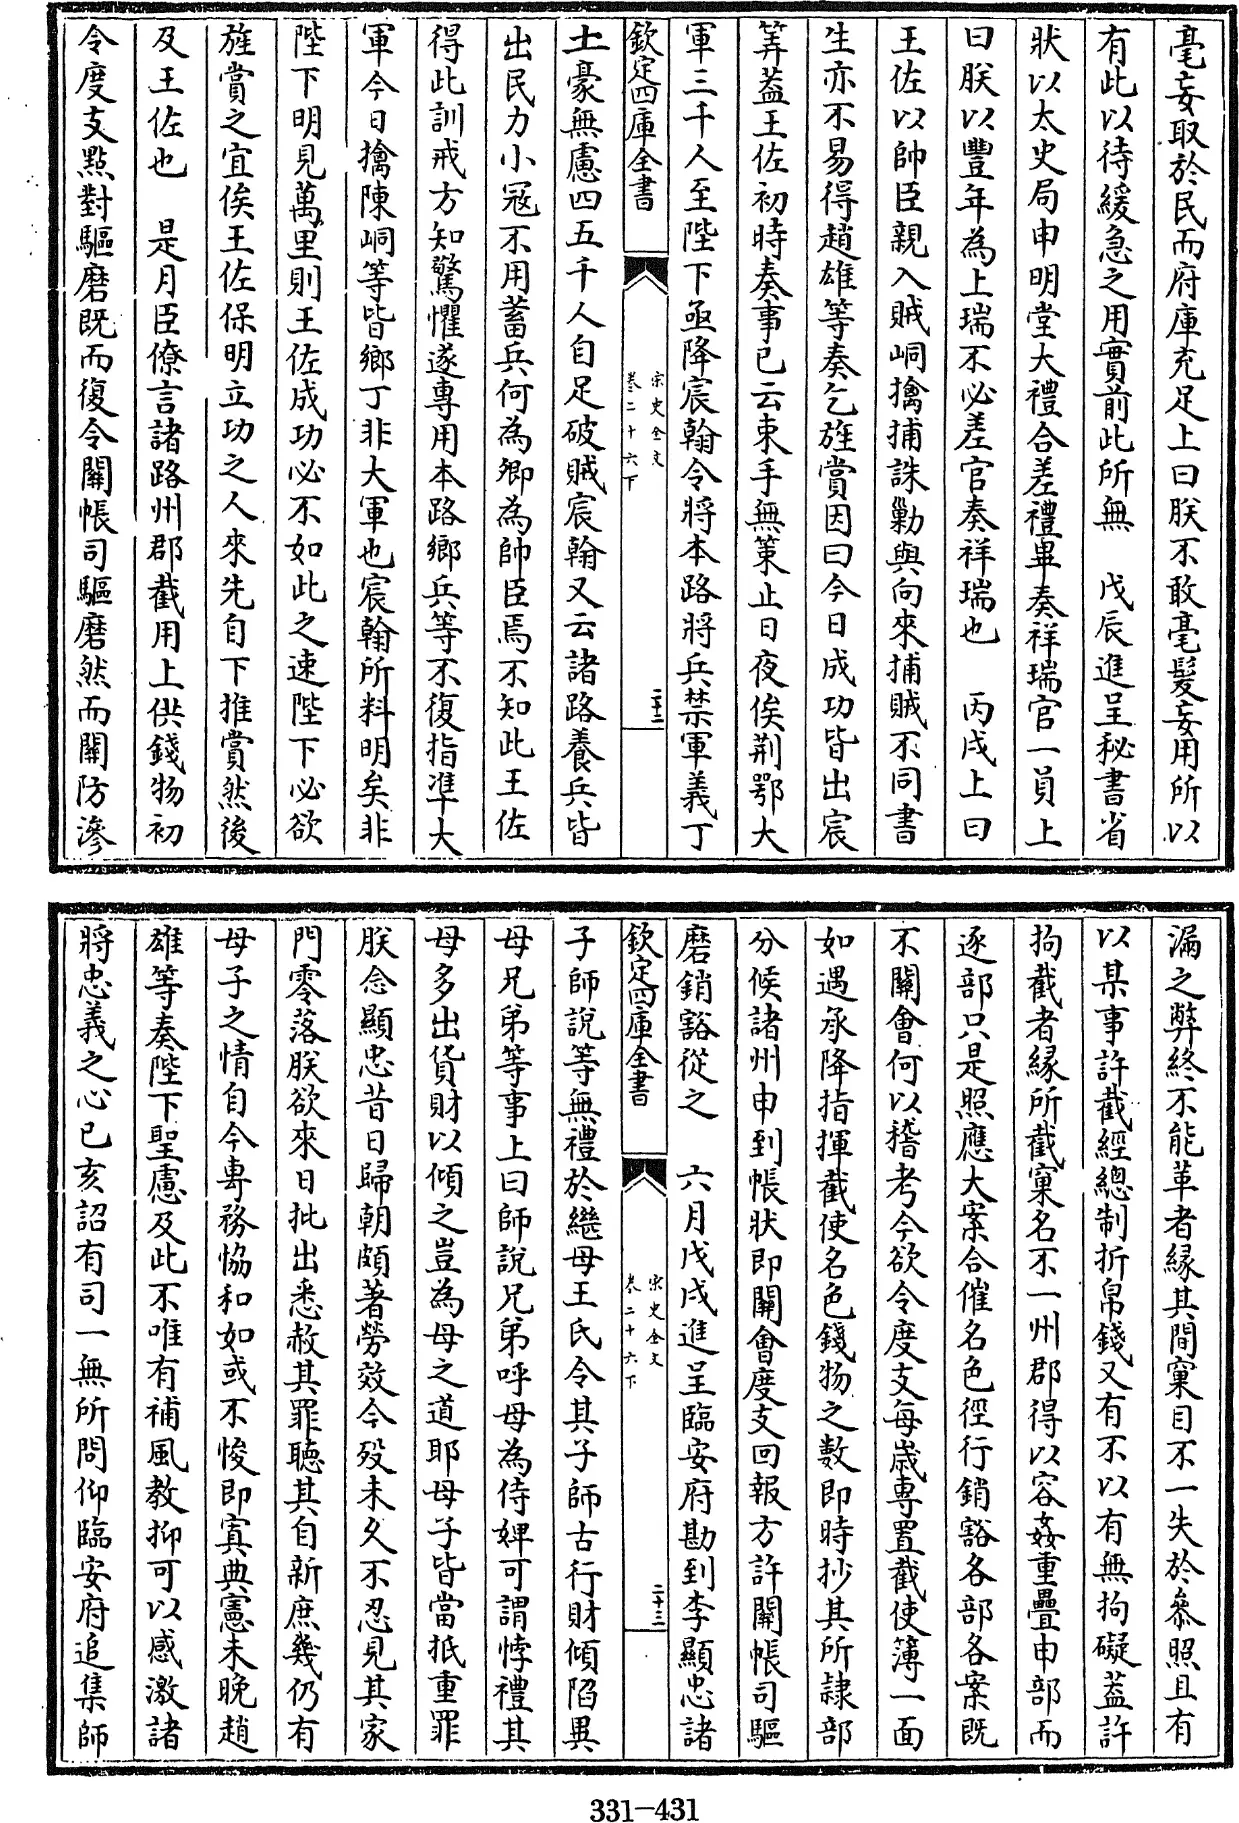 毫妄取於民而府庫充足上曰朕不敢毫髮妄用所以
有此以待緩急之用實前此所無　戊辰進呈秘書省
狀以太史局申明堂大禮合差禮畢奏祥瑞官一員上
曰朕以豐年為上瑞不必差官奏祥瑞也　丙戌上曰
王佐以帥臣親入賊峒擒捕誅勦與向來捕賊不同書
生亦不易得趙雄等奏乞旌賞因曰今日成功皆出宸
筭蓋王佐初時奏事已云束手無策止日夜俟荆鄂大
軍三千人至陛下亟降宸翰令將本路將兵禁軍義丁
欽定四庫全書
宋史全文
卷二十六下
二十二
土豪無慮四五千人自足破賊宸翰又云諸路養兵皆
出民力小冦不用蓄兵何為卿為帥臣焉不知此王佐
得此訓戒方知驚懼遂專用本路鄉兵等不復指準大
軍今日擒陳峒等皆鄉丁非大軍也宸翰所料明矣非
陛下明見萬里則王佐成功必不如此之速陛下必欲
旌賞之宜俟王佐保明立功之人來先自下推賞然後
及王佐也　是月臣僚言諸路州郡截用上供錢物初
令度支點對驅磨既而復令關帳司驅磨然而關防滲
漏之弊終不能革者緣其間窠目不一失於參照且有
以某事許截經總制折帛錢又有不以有無拘礙蓋許
拘截者緣所截窠名不一州郡得以容姦重疊申部而
逐部只是照應大案合催名色徑行銷豁各部各案既
不關會何以稽考今欲令度支每歲專置截使簿一面
如遇承降指揮截使名色錢物之數即時抄其所隸部
分候諸州申到帳狀即關會度支回報方許關帳司驅
磨銷豁從之　六月戊戌進呈臨安府勘到李顯忠諸
欽定四庫全書
宋史全文
卷二十六下
二十三
子師說等無禮於繼母王氏令其子師古行財傾陷異
母兄弟等事上曰師說兄弟呼母為侍婢可謂悖禮其
母多出貨財以傾之豈為母之道耶母子皆當抵重罪
朕念顯忠昔日歸朝頗著勞效今歿未久不忍見其家
門零落朕欲來日批出悉赦其罪聽其自新庶幾仍有
母子之情自今專務協和如或不悛即寘典憲未晚趙
雄等奏陛下聖慮及此不唯有補風教抑可以感激諸
將忠義之心己亥詔有司一無所問仰臨安府追集師
331-431